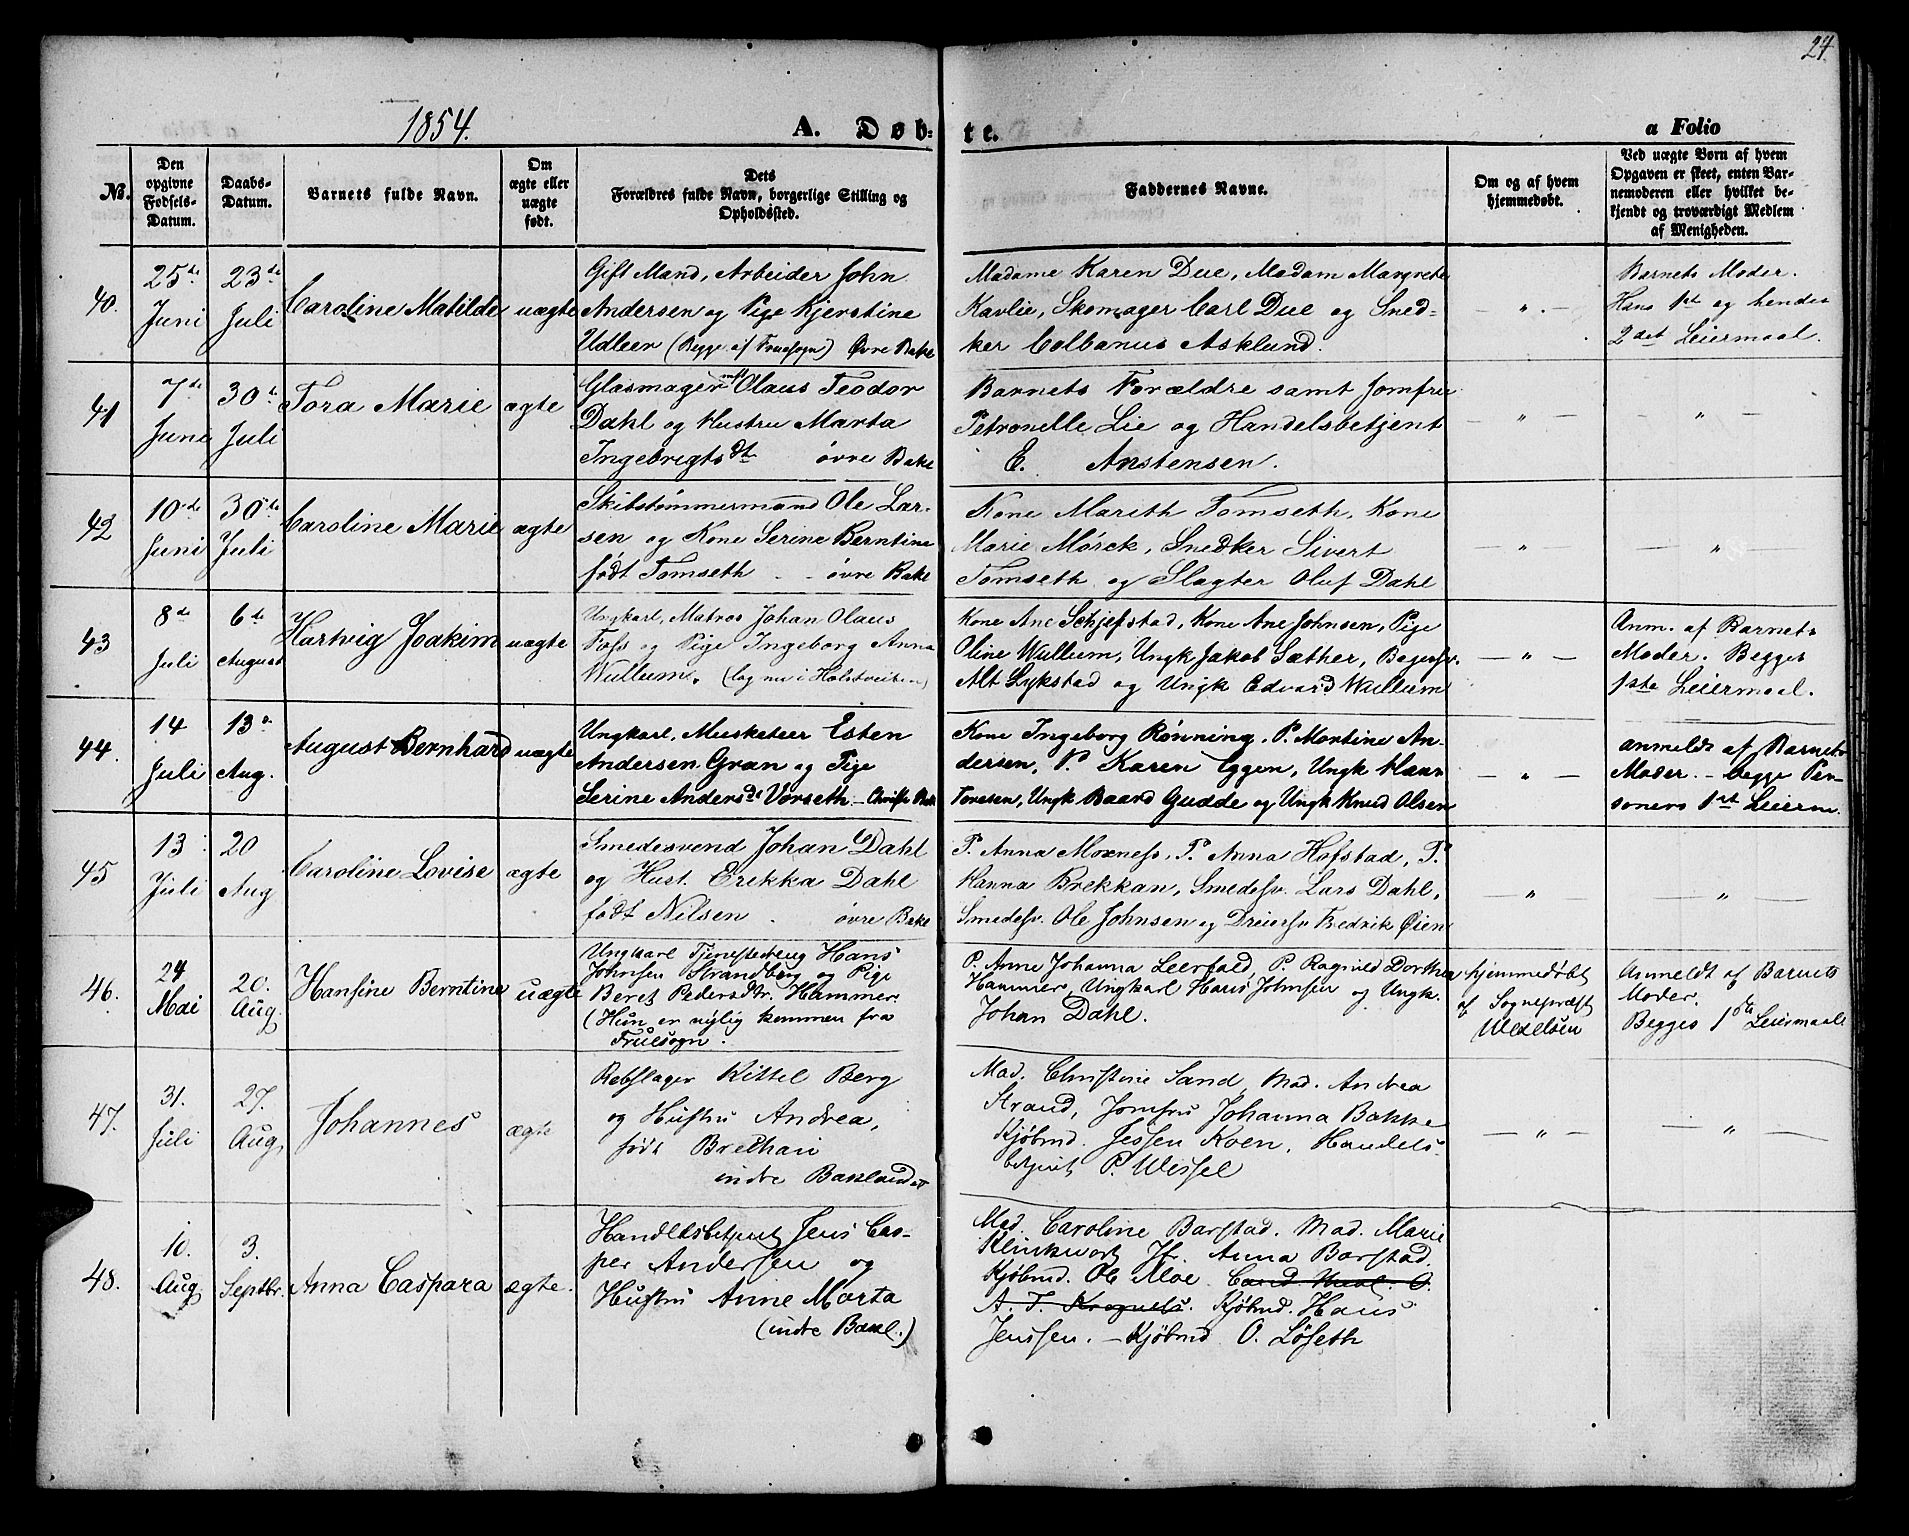 27.
1854.
A. Døb-
te.
a Folio
No.
Den opgivne Fødsels-Datum.
Daabs-Datum.
Barnets fulde Navn.
Om ægte eller uægte født.
Dets Forældres fulde Navn, borgerlige Stilling og Opholdssted.
Faddernes Navne.
Om og af hvem hjemmedøbt.
Ved uægte Børn af hvem Opgaven er skeet, enten Barnemoderen eller hvilket bekjendt og troværdigt Medlem af Menigheden.
40.
25de Juni
23de Juli
Caroline Matilde
uægte
Gift Mand, Arbeider John
Andersen og Pige Kjerstine
Udleer (Begge af Fruesogn) Øvre Bake
Madame Karen Due, Madam Margrete
Kavlie, Skomager Carl Due og Sned-
ker Colbanus Asklund.
— " . —
Barnets Moder.
Hans 1st og hendes
2det Leiermaal.
41
7de Juni
30te Juli
Tora Marie
ægte
Glasmager Olaus Teodor
Dahl og Hustru Marta
Ingebrigtsdt øvre Bake
Barnets Forældre samt Jomfru
Petronelle Lie og Handelsbetjent
E. Anstensen.
— " —
— " —
42
10de Juni
30te Juli
Caroline Marie
ægte
Skibstømmermand Ole Lar-
sen og Kone Serine Berntine
født Tomseth - - øvre Bake
Kone Marith Tomseth, Kone
Marie Mørck, Snedker Sivert
Tomseth og Slagter Oluf Dahl
— " —
— " —
43
8de Juli
6te August
Hartvig Joakim
uægte
Ungkarl, Matros Johan Olaus
Foss og Pige Ingeborg Anna
Wullum. (log nu i Holstveiten)
Kone Ane Schjefstad, Kone Ane Johnsen, Pige
Oline Wullum, Ungk Jakob Sæther,
Alt Lykstad og Ungk Edvard Wullum
— " —
Anm. af Barnets
Moder. Begges
1ste Leiermaal.
44.
14 Juli
13de Aug.
August Bernhard
uægte
Ungkarl, Musketeer Esten
Andersen Gran og Pige
Serine Andersdt Vorseth
Kone Ingeborg Rønning. P. Martine An-
dersen, P. Karen Eggen, Ungk Hans
Toresen, Ungk Baard Gudde og Ungk Knud Olsen
— " —
anmeldt af Barnets
Moder. – begge Per-
soners 1st Leierm.
45
13 Juli
20 Aug
Caroline Lovise
ægte
Smedesvend Johan Dahl
og Hust. Erikka Dahl
født Nilsen - øvre Bake
P. Anna Moxness, P. Anna Hofstad, P.
Hanna Brekkan, Smedesv. Lars Dahl,
Smedesv. Ole Johnsen og Dreiersv Fredrik Øien
— " —
"
46.
24 Mai
20. Aug.
Hansine Berntine
uægte
Ungkarl Tjenestedreng Hans
Johnsen Strandberg og Pige
Beret Pedersdtr. Hammer.
(Hun er nylig kommen fra
Fruesogn.
P. Anne Johanna Leerfald, P. Ragnild Dorthea
Hammer, Ungkarl Hans Johnsen og Ungk.
Johan Dahl.
hjemmedøbt
af Sognepræst
Wexelsen
Anmeldt af Barnets
Moder.
Begges 1ste Leiermaal
47.
31. Juli
27. Aug
Johannes
ægte
Rebslager Kittel Berg
og Hustru Andrea,
født Brekhan
indre Baklandet
Mad. Christine Sand, Mad. Andrea
Strand, Jomfru Johanna Bakke
Kjøbmd. Jessen Koen, Handels-
betjent P. Wessel
— " —
— " —
48.
10. Aug
3. Septbr.
Anna Caspara
ægte.
Handelsbetjent Jens Cas-
per Andersen og
Hustru Anne Marta
(indre Bakl.)
Mad. Caroline Barstad. Mad. Marie
Klinkwort Jfr. Anna Barstad.
Kjøbmd. Ole Moe.
Kjøbmd. Hans
Jenssen. – Kjøbmd O. Løseth